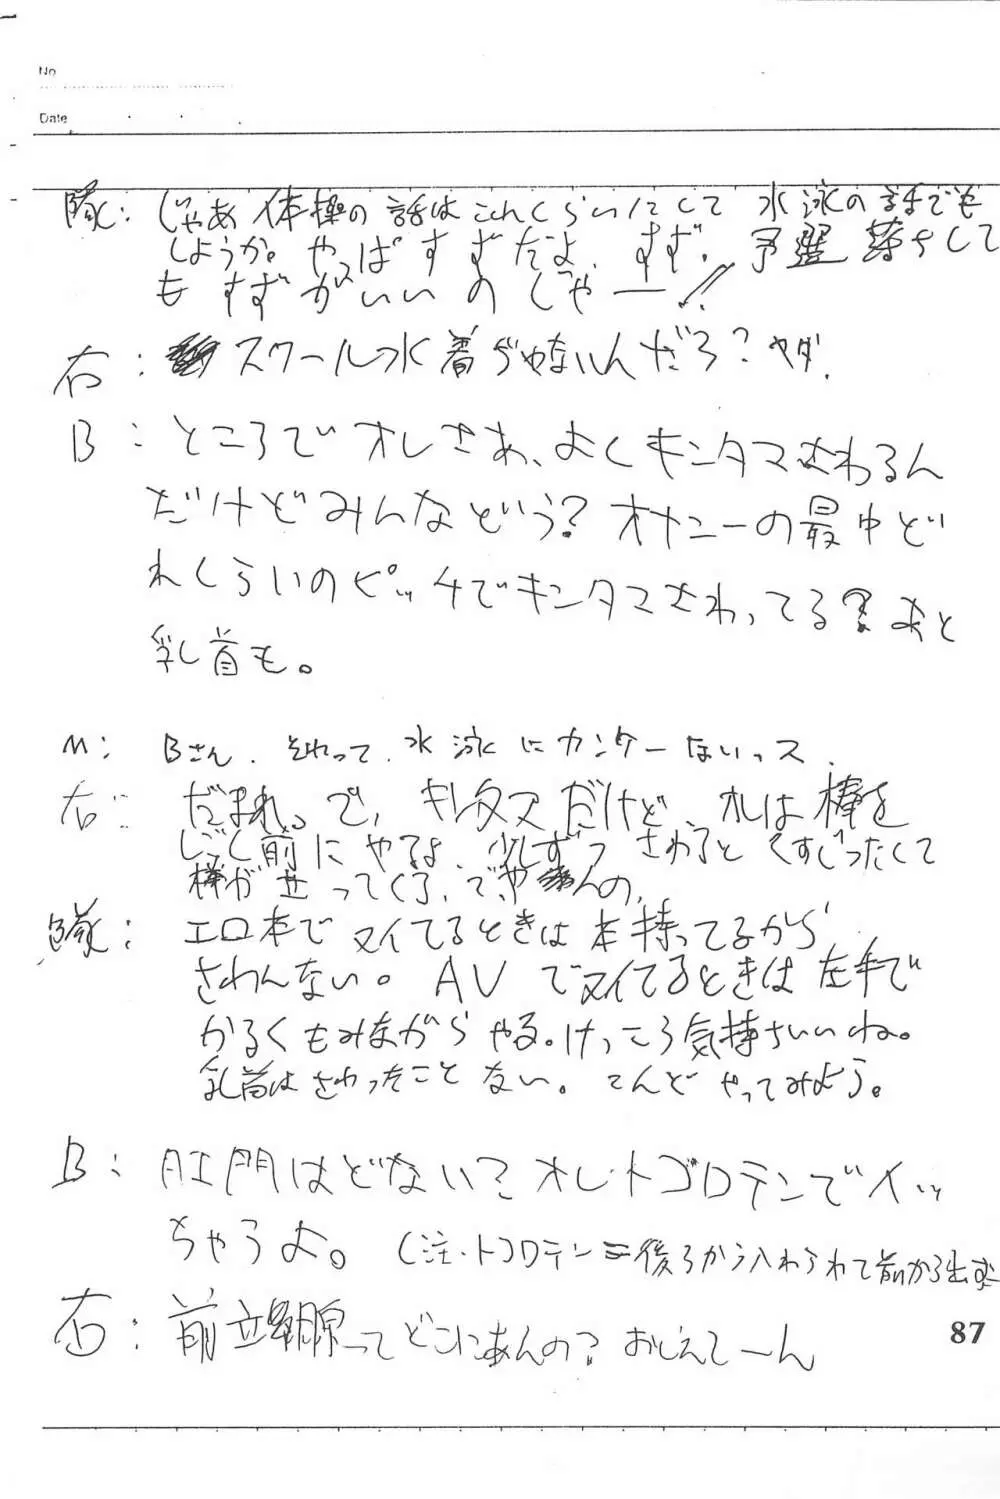 No
Date
隊：じゃあ体操の話はこれくらいにして 水泳の話でも
しようか。やっぱすずだよ、すず。予選落ちして
もすずがいいのじゃー!!
右：スクール水着ぢゃないんだろ？ヤダ．
B：ところでオレさあ、よくキンタマさわるん
だけどみんなどう？オナニーの最中ど
れくらいのピッチでキンタマさわってる？あと
乳首も。
M：Bさん．それって、水泳にカンケーないっス．
右：だまれ。で、キンタマだけど、オレは棒を
しごく前にやるよ、少しずつさわるとくすぐったくて
棒がせってくる、でやんの。
隊：エロ本でヌイてるときは本持ってるから
さわんない。AVでヌイてるときは左手で
かるくもみながらやる。けっこう気持ちいいね。
乳首はさわったことない。こんどやってみよう。
B：肛門はどない？オレ・トコロテンでイッ
ちゃうよ。（注・トコロテン＝後ろから入れられて前から出す
右：前立腺ってどこにあんの？おしえてーん
87